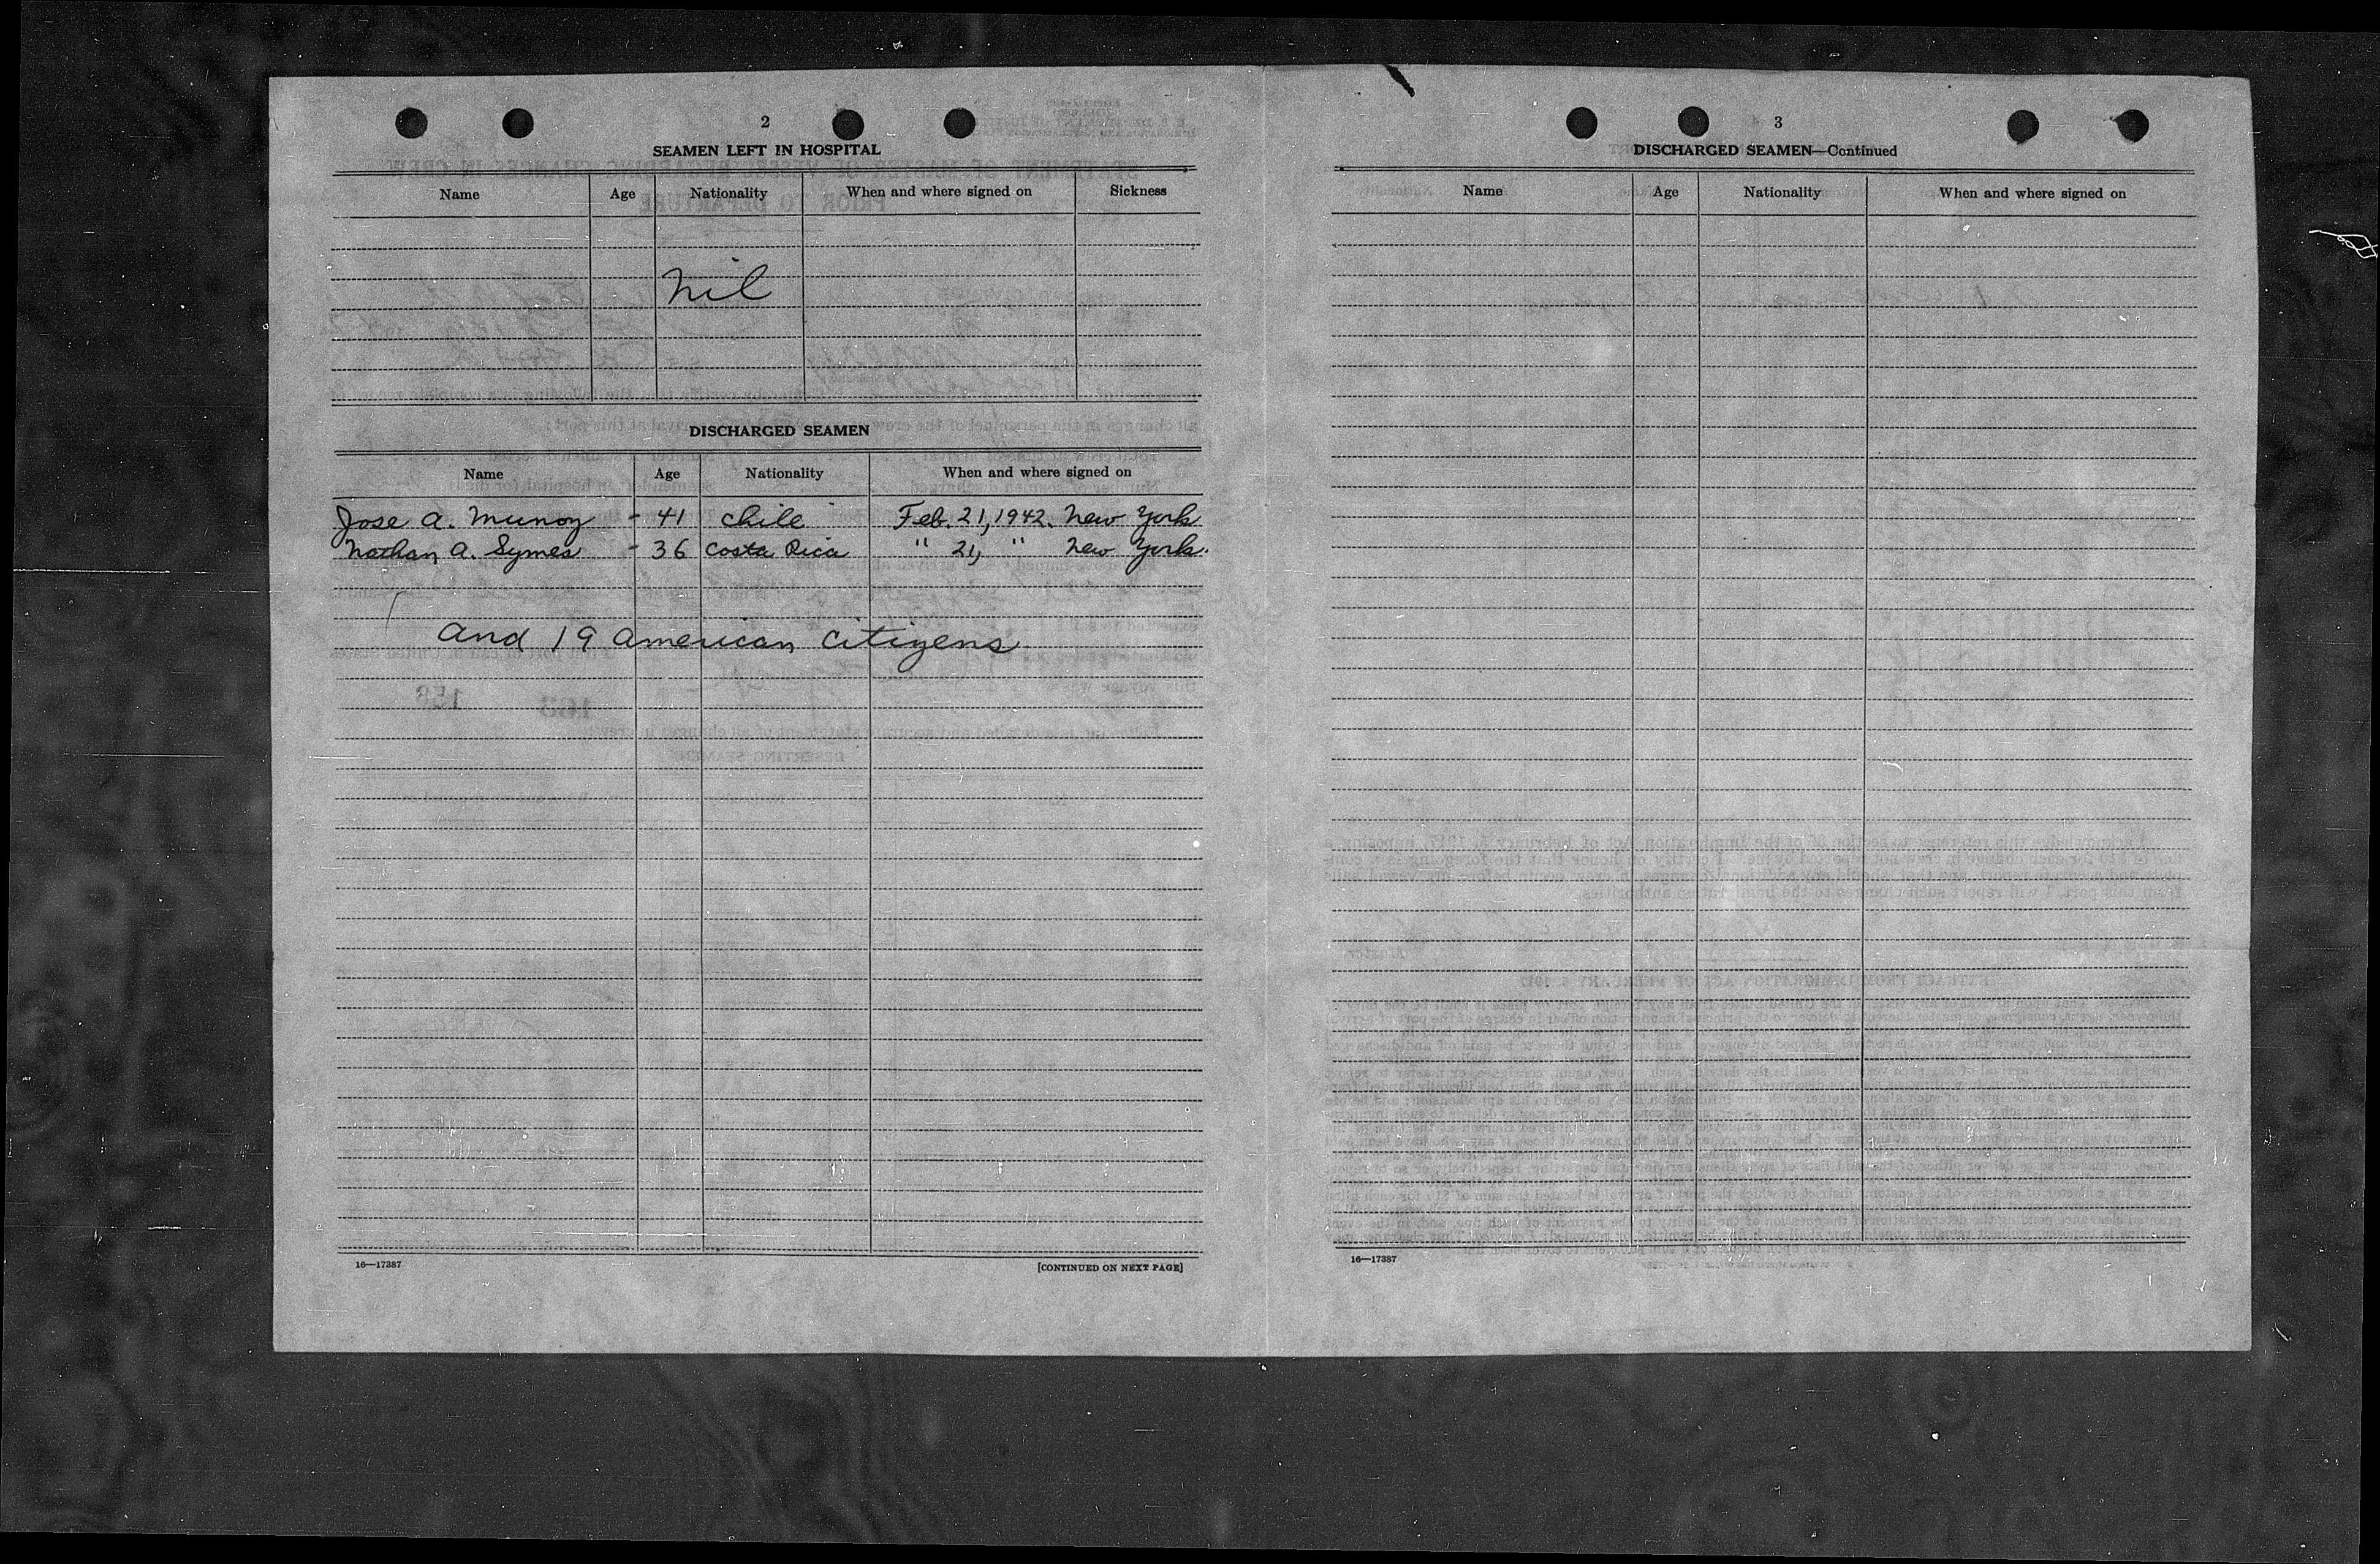 2
SEAMEN LEFT IN HOSPITAL
Name Age Nationality When and where signed on Sickness
nil
DISCHARGED SEAMEN
Name Age Nationality When and where signed on
Jose A. Munoz - 41 Chile Feb. 21, 1942. New York
Nathan A. Symes - 36 Costa Rica " 21, " New York.
and 19 american citizens
16—17387
[CONTINUED ON NEXT PAGE]
3
DISCHARGED SEAMEN—Continued
Name Age Nationality When and where signed on
16—17387